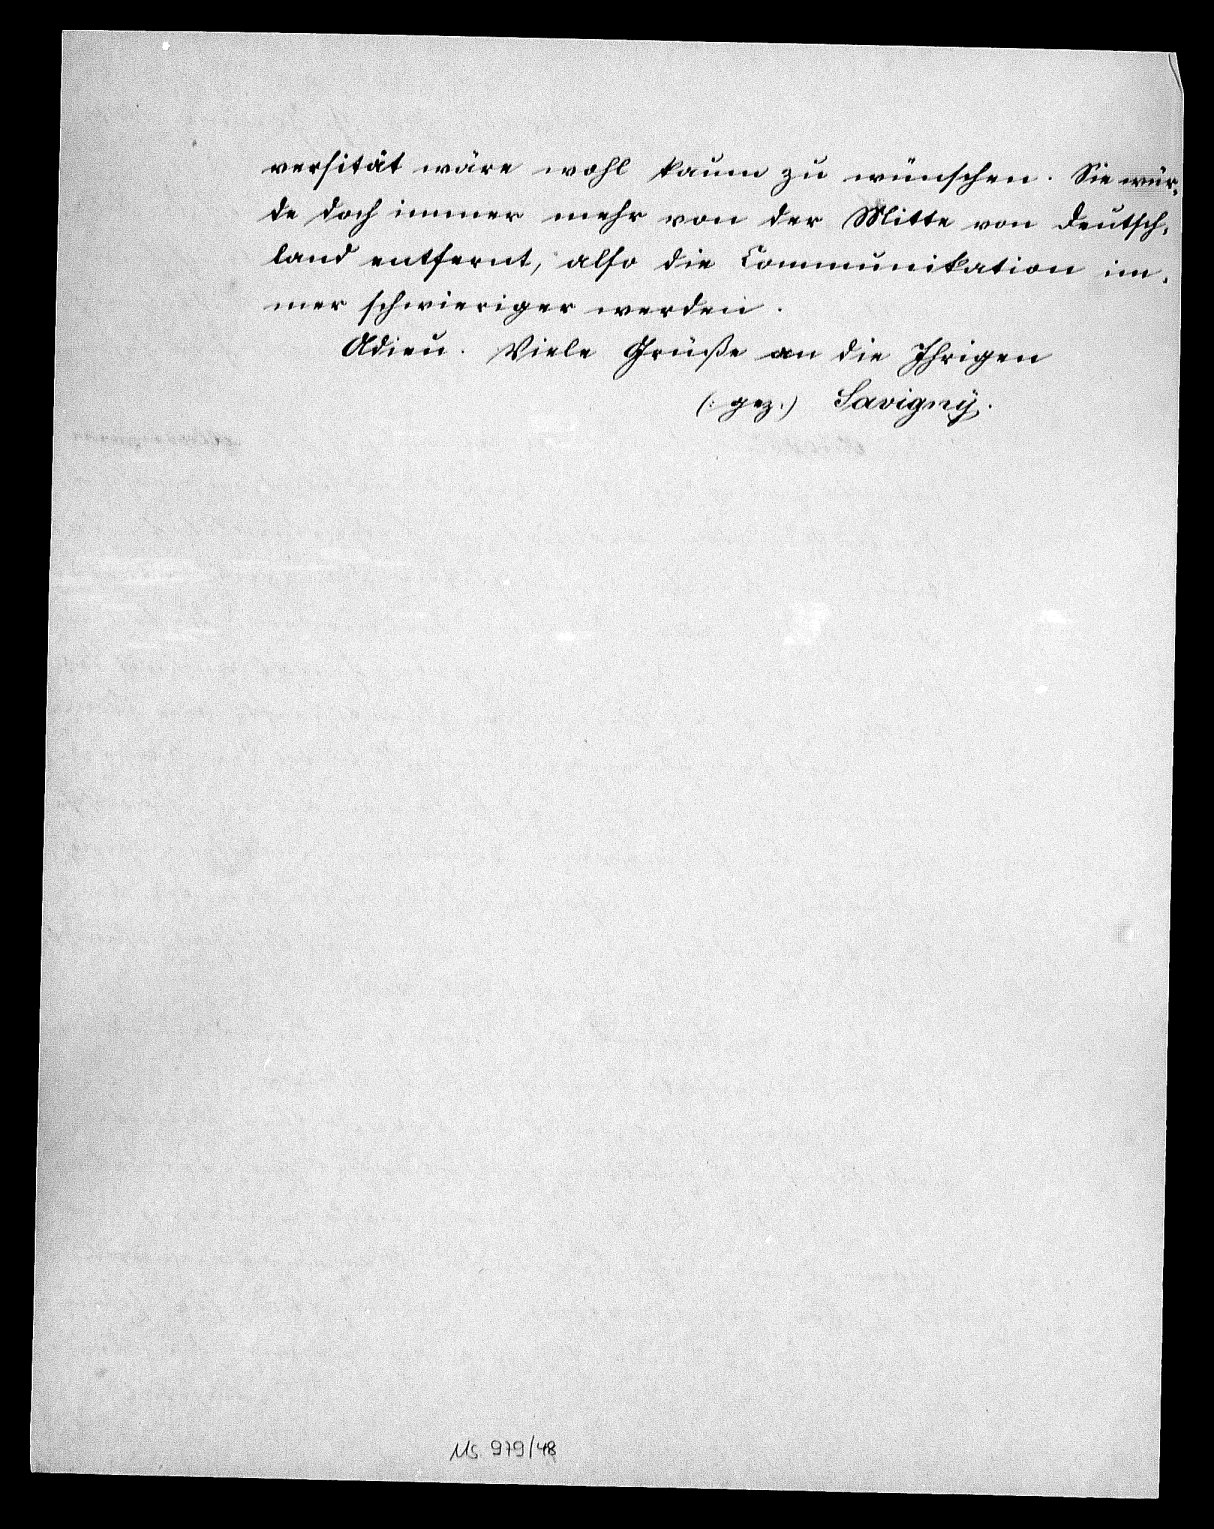 versität wäre wohl kaum zu wünschen. Sie wür-
de doch immer mehr von der Mitte von Deutsch-
land entfernt, also die Communikation im-
mer schwieriger werden.
Adieu. Viele Grüße an die Ihrigen
(: gez.) Savigny.
Ms. 979/48